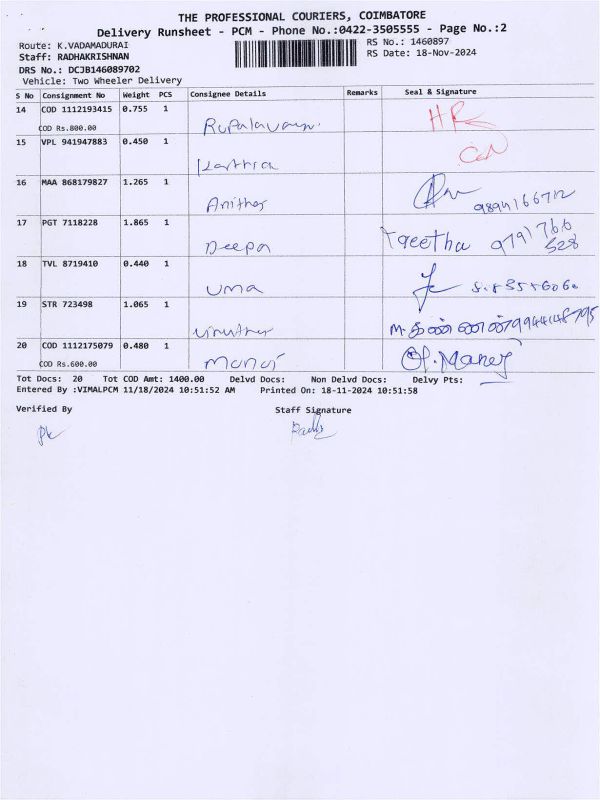 THE PROFESSIONAL COURIERS, COIMBATORE
Delivery Runsheet - PCM - Phone No.:0422-3505555 - Page No.:2
Route: K.VADAMADURAI
RS No.: 1460897
Staff: RADHAKRISHNAN
RS Date: 18-Nov-2024
DRS No.: DCJB146089702
Vehicle: Two Wheeler Delivery
S No Consignment No Weight PCS Consignee Details Remarks Seal & Signature
14 COD 1112193415 0.755 1
COD Rs.800.00
15 VPL 941947883 0.450 1
Karthica
16 MAA 868179827 1.265 1
Anitha
17 PGT 7118228 1.865 1
Deepa 9791766
528
18 TVL 8719410 0.440 1
Uma
19 STR 723498 1.065 1
M.கண்ணன் 9944148795
20 COD 1112175079 0.480 1
COD Rs.600.00 Manoj Manoj
Tot Docs: 20 Tot COD Amt: 1400.00 Delvd Docs: Non Delvd Docs: Delvy Pts:
Entered By :VIMALPCM 11/18/2024 10:51:52 AM Printed On: 18-11-2024 10:51:58
Verified By Staff Signature